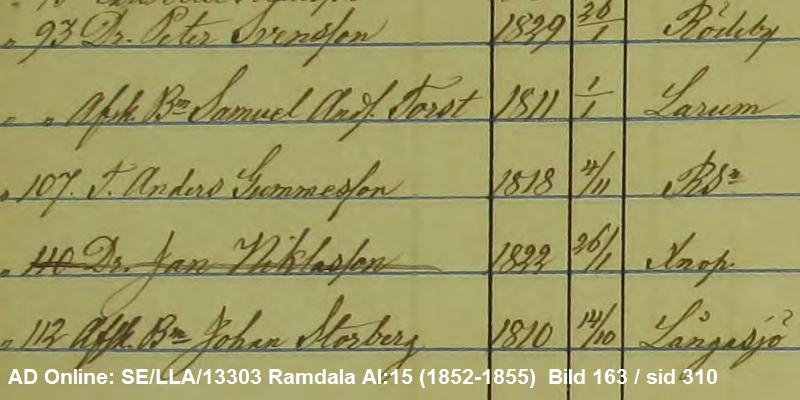 " 93 Dr. Peter Svensson 1829 26/1 Rödeby
" " Afsk. Bm Samuel Ands. Torst 1811 1/1 Larum
" 107. T. Anders Gummesson 1818 4/11 RSn
" 110 Dr. Jan Niklasson 1822 26/1 Knop.
" 112 Afsk. Bm Johan Storberg 1810 14/10 Långasjö
AD Online: SE/LLA/13303 Ramdala AI:15 (1852-1855) Bild 163 / sid 310